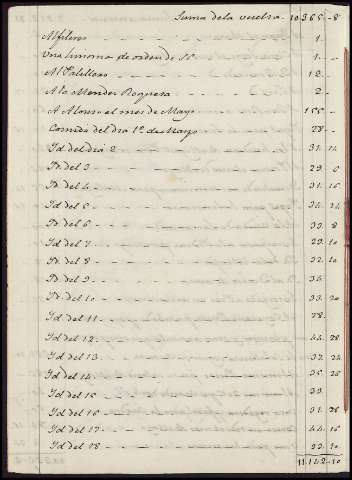 Suma de la vuelta 10365-8
Alfileros 1-
Una limosna de orden de S.E. 1-
Al Palillero 12-
A la Mendez Roguera 2-
A Alonso el mes de Mayo 155-
Comida del dia 1º de Mayo 28-
Id del dia 2 31.14
Id. del 3 29.0
Id. del 4 31.16
Id del 5 34.24
Id. del 6 33.8
Id del 7 29.10
Id. del 8 32.10
Id. del 9 34.
Id. del 10 33.20
Id del 11 28.
Id del 12 44.28
Id del 13 32.24
Id del 14 35.26
Id del 15 33.
Id del 16 31.28
Id del 17 44.16
Id del 18 33.10
11.142-10